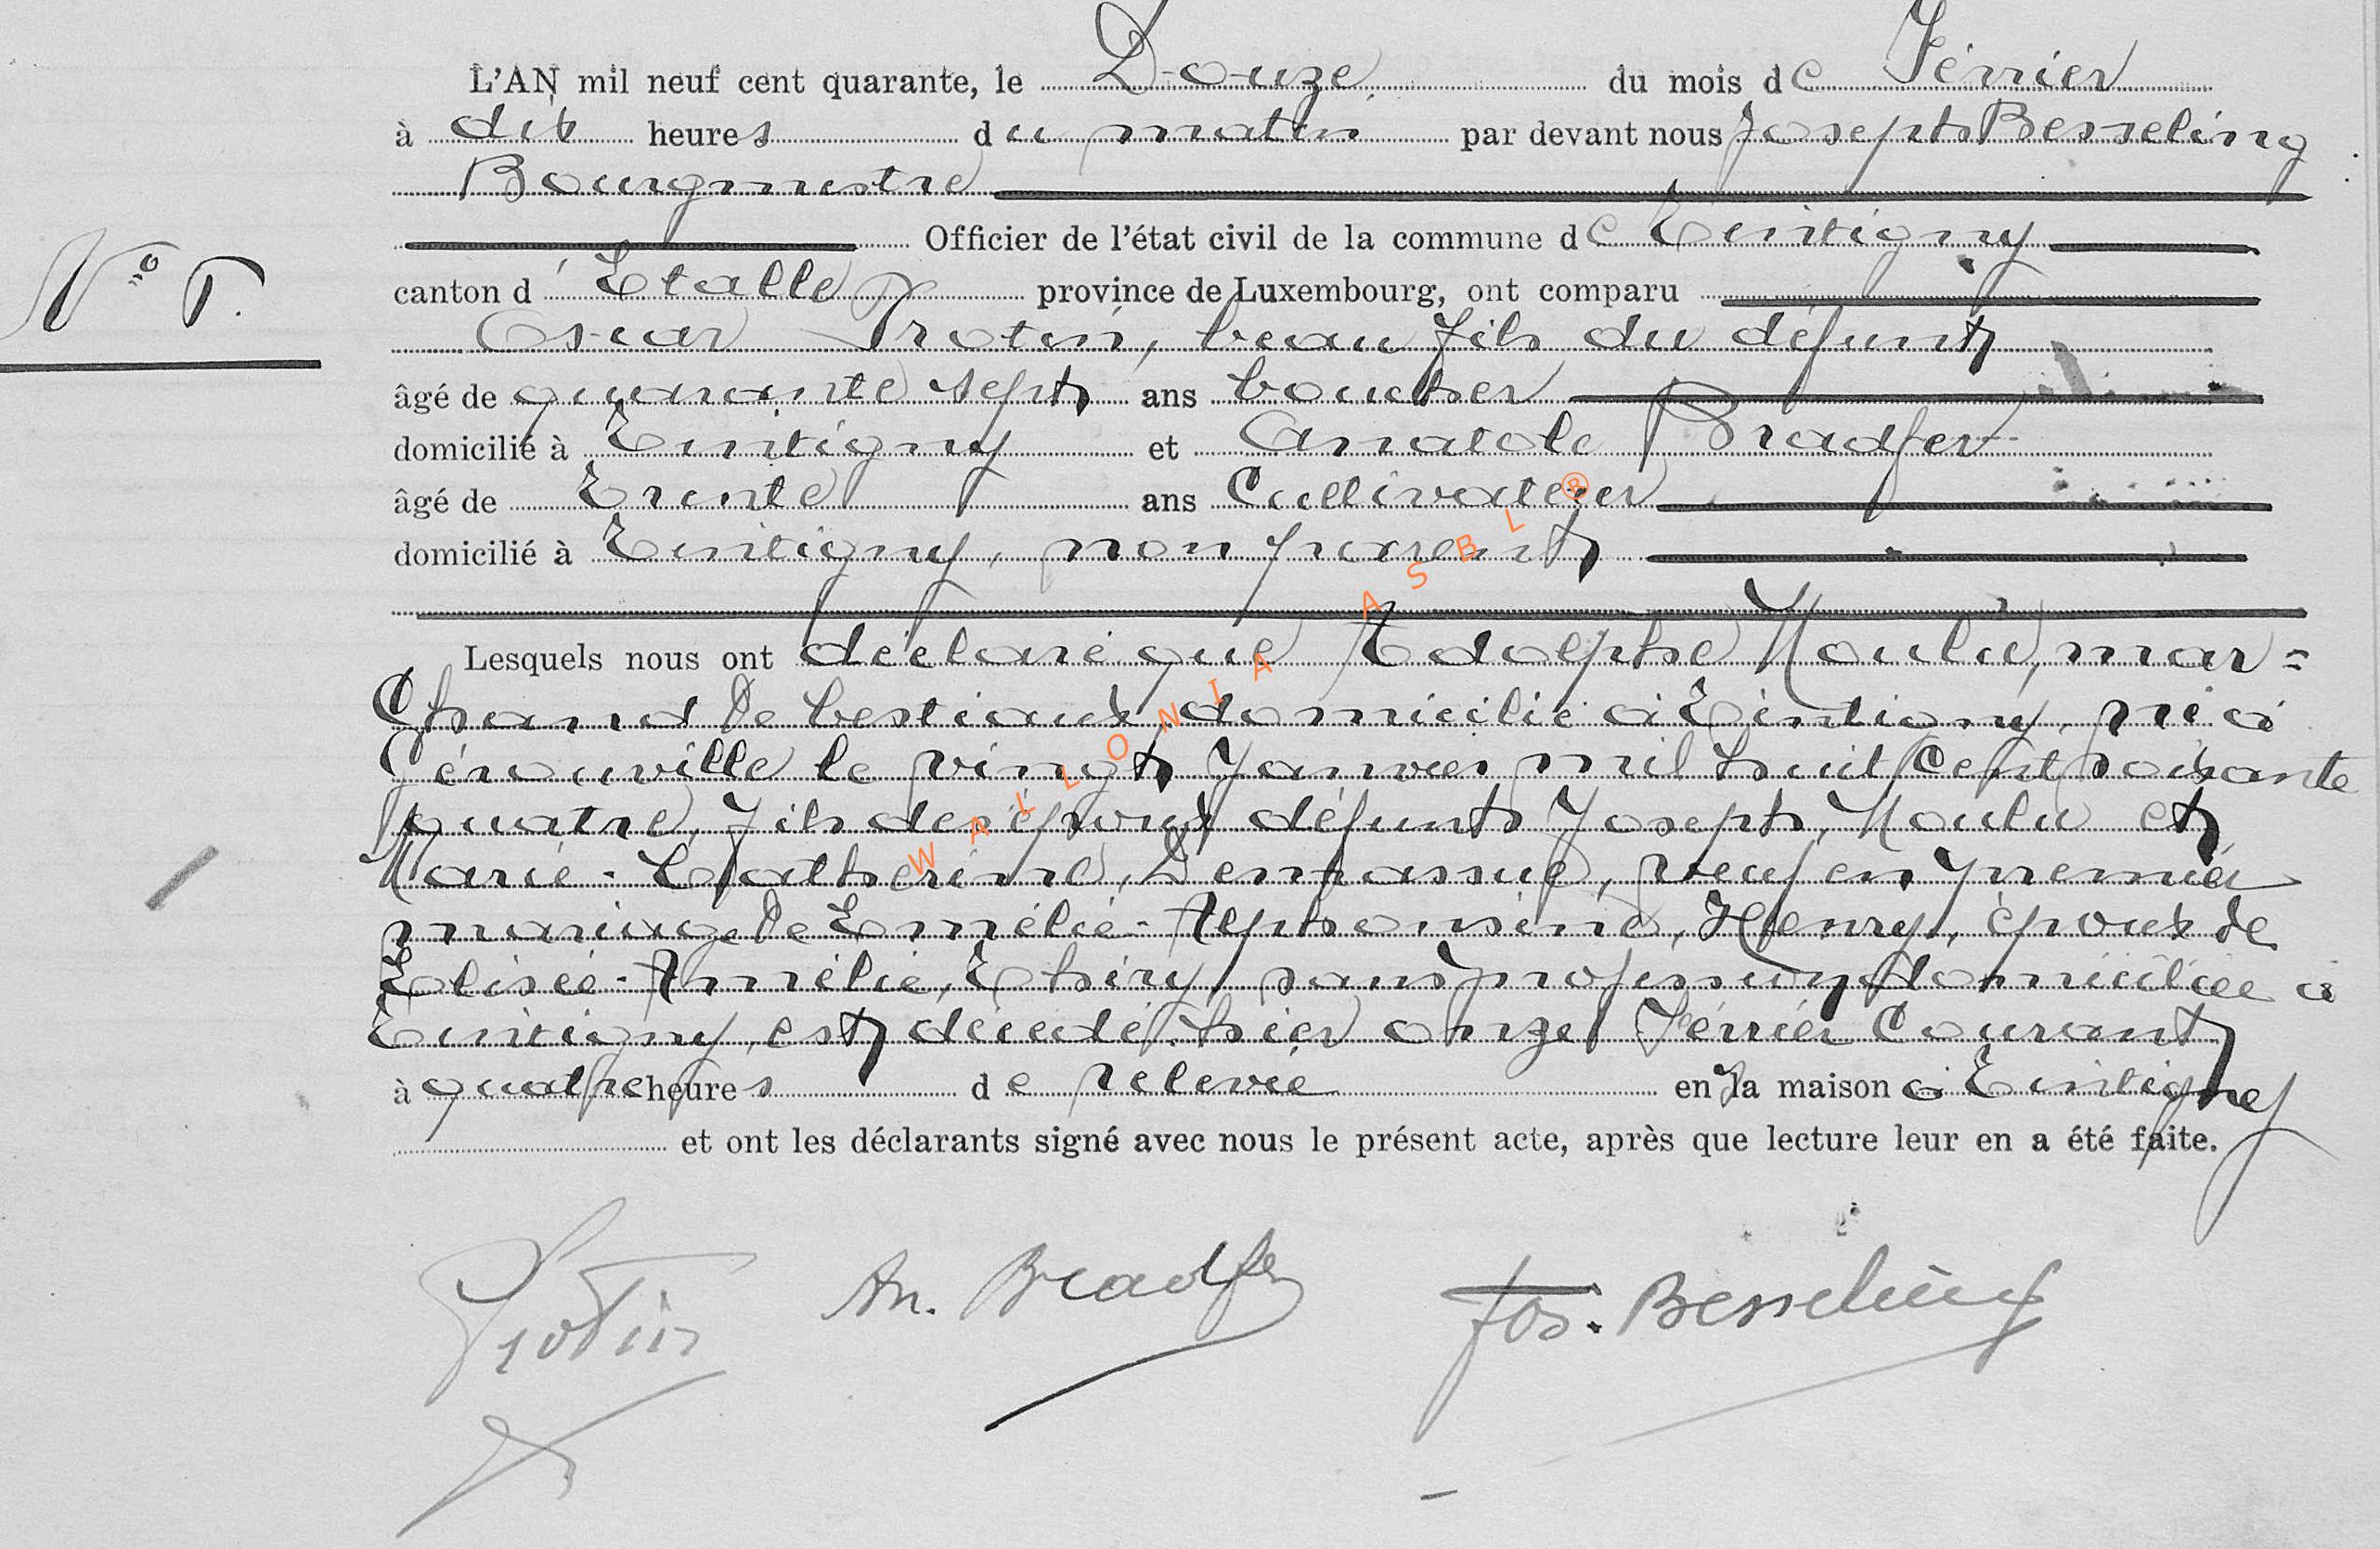 L'AN mil neuf cent quarante, le Douze du mois de Février
à dix heures du matin par devant nous Joseph Besseling
Bourgmestre
Officier de l'état civil de la commune de Tintigny
N° 5.
canton d'Etalle province de Luxembourg, ont comparu
Oscar Protin, beau fils du défunt
âgé de quarante sept ans boucher
domicilié à Tintigny et Anatole Bradfer
âgé de Trente ans Cultivateur
domicilié à Tintigny, non parent
Lesquels nous ont déclaré que Adolphe Moulu, mar=
chand de bestiaux domicilié à Tintigny, né à
Gérouville le vingt Janvier mil huit cent soixante
quatre, fils des époux défunts Joseph, Moulu et
Marie-Catherine, veuf en premier
mariage de Emélie-Alphonsine, Henry, époux de
Elisée-Amélie, Thiry, sans profession domiciliée à
Tintigny, est décédé hier onze Février Courant
à quatre heures de relevée en la maison à Tintigny
et ont les déclarants signé avec nous le présent acte, après que lecture leur en a été faite.
Protin An. Bradfer Jos. Besseling
WALLONIA ASBL ®